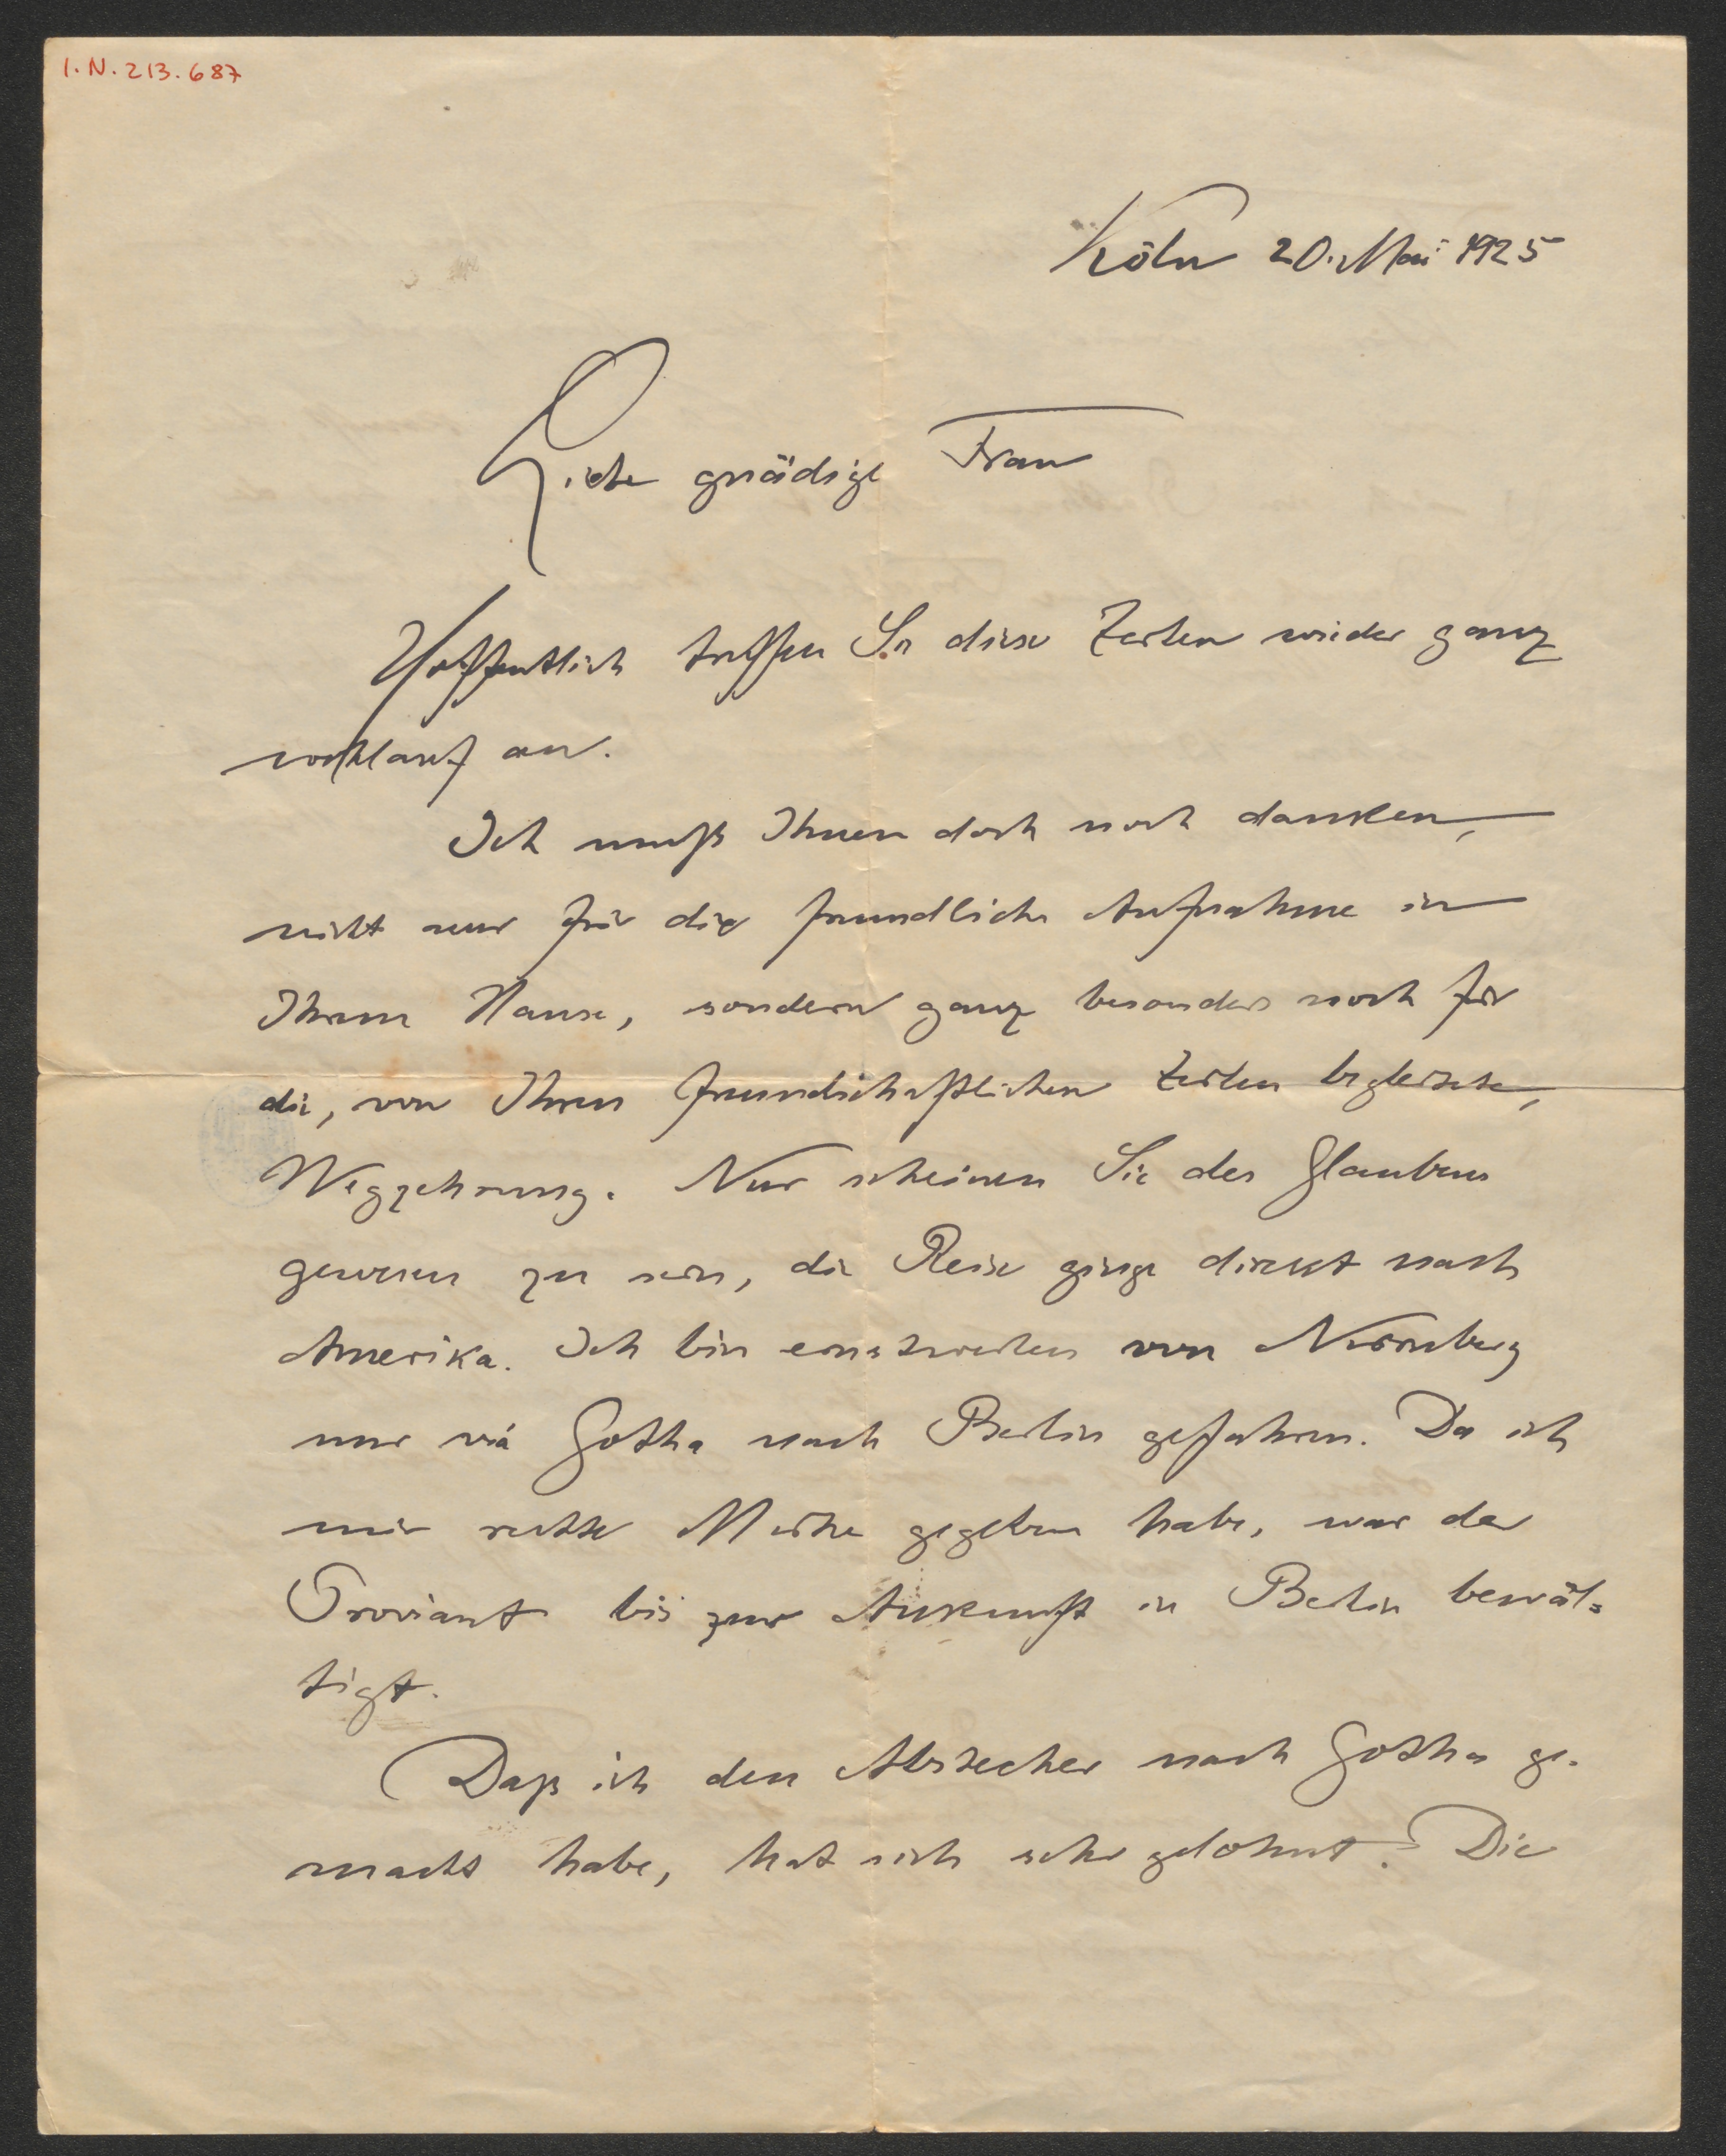 I.N. 213.687
Köln 20. Mai 1925
Liebe gnädige Frau
Hoffentlich treffen Sie diese Zeilen wieder ganz
wohlauf an.
Ich muß Ihnen doch noch danken,
nicht nur für die freundliche Aufnahme in
Ihrem Hause, sondern ganz besonders noch für
die, von Ihren freundschaftlichen Zeilen begleitete,
Wegzehrung. Nur scheinen Sie des Glaubens
gewesen zu sein, die Reise ginge direkt nach
Amerika. Ich bin einstweilen von Nürnberg
nur via Gotha nach Berlin gefahren. Da ich
mir rechte Mühe gegeben habe, war der
Proviant bis zur Ankunft in Berlin bewäl-
tigt.
Daß ich den Abstecher nach Gotha ge-
macht habe, hat sich sehr gelohnt. Die